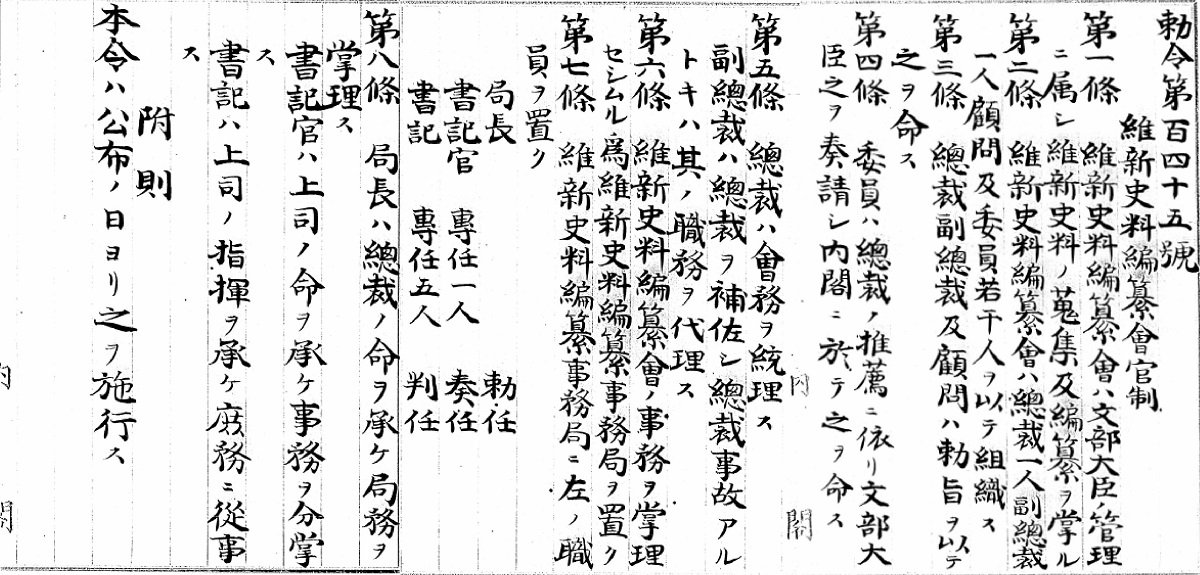 勅令第百四十五號
維新史料編纂會官制
第一條　維新史料編纂會ハ文部大臣ノ管理
ニ属シ維新史料ノ蒐集及編纂ヲ掌ル
第二條　維新史料編纂會ハ總裁一人副總裁
一人顧問及委員若干人ヲ以テ組織ス
第三條　總裁副總裁及顧問ハ勅旨ヲ以テ
之ヲ命ス
第四條　委員ハ總裁ノ推薦ニ依リ文部大
臣之ヲ奏請シ内閣ニ於テ之ヲ命ス
内閣
第五條　總裁ハ會務ヲ統理ス
副總裁ハ總裁ヲ補佐シ總裁事故アル
トキハ其ノ職務ヲ代理ス
第六條　維新史料編纂會ノ事務ヲ掌理
セシムル爲維新史料編纂事務局ヲ置ク
第七條　維新史料編纂事務局ニ左ノ職
員ヲ置ク
局長　勅任
書記官　專任一人　奏任
書記　專任五人　判任
第八條　局長ハ總裁ノ命ヲ承ケ局務ヲ
掌理ス
書記官ハ上司ノ命ヲ承ケ事務ヲ分掌
ス
書記ハ上司ノ指揮ヲ承ケ庶務ニ從事
ス
附則
本令ハ公布ノ日ヨリ之ヲ施行ス
内閣